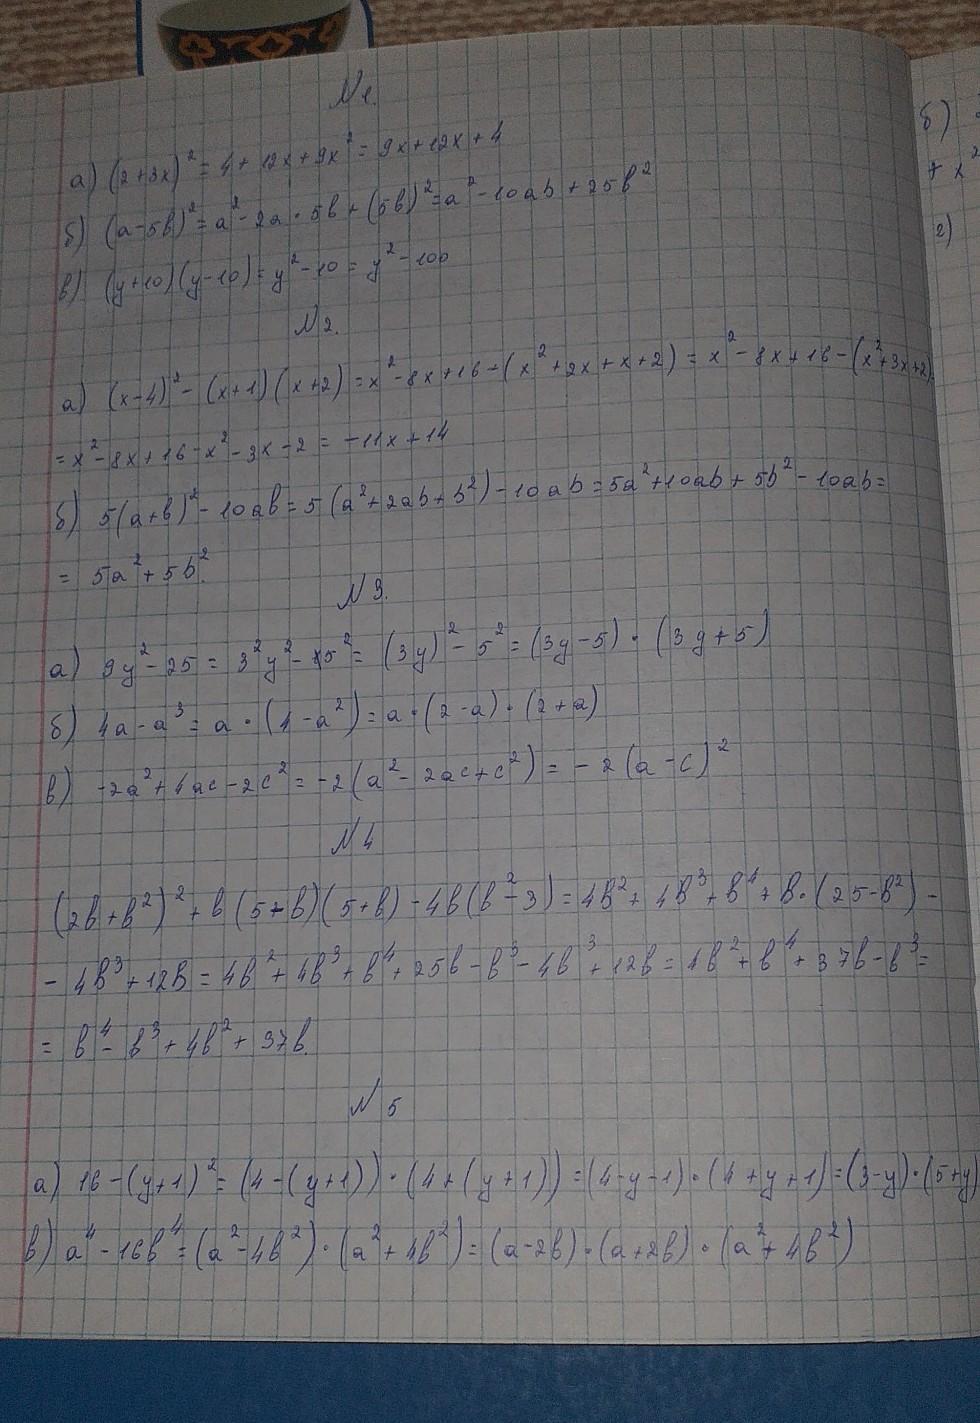 №1.
а) (2+3x)² = 4 + 12x + 9x² = 9x + 12x + 4
б) (a-5b)² = a² - 2a · 5b + (5b)² = a² - 10ab + 25b²
в) (y+10)(y-10) = y² - 10 = y² - 100
№2.
а) (x-4)² - (x+1)(x+2) = x² - 8x + 16 - (x² + 2x + x + 2) = x² - 8x + 16 - (x² + 3x + 2) =
= x² - 8x + 16 - x² - 3x - 2 = -11x + 14
б) 5(a+b)² - 10ab = 5(a² + 2ab + b²) - 10ab = 5a² + 10ab + 5b² - 10ab =
= 5a² + 5b².
№3.
а) 9y² - 25 = 3²y² - 5² = (3y)² - 5² = (3y-5) · (3y+5)
б) 4a - a³ = a · (4 - a²) = a · (2-a) · (2+a)
в) -2a² + 4ac - 2c² = -2(a² - 2ac + c²) = -2(a-c)²
№4
(2b+b²)² + b(5-b)(5+b) - 4b(b²-3) = 4b² + 4b³ + b⁴ + b · (25-b²) -
- 4b³ + 12b = 4b² + 4b³ + b⁴ + 25b - b³ - 4b³ + 12b = 4b² + b⁴ + 37b - b³ =
= b⁴ - b³ + 4b² + 37b.
№5
а) 16 - (y+1)² = (4-(y+1)) · (4+(y+1)) = (4-y-1) · (4+y+1) = (3-y) · (5+y)
в) a⁴ - 16b⁴ = (a²-4b²) · (a²+4b²) = (a-2b) · (a+2b) · (a²+4b²)
б)
+ x²
г)